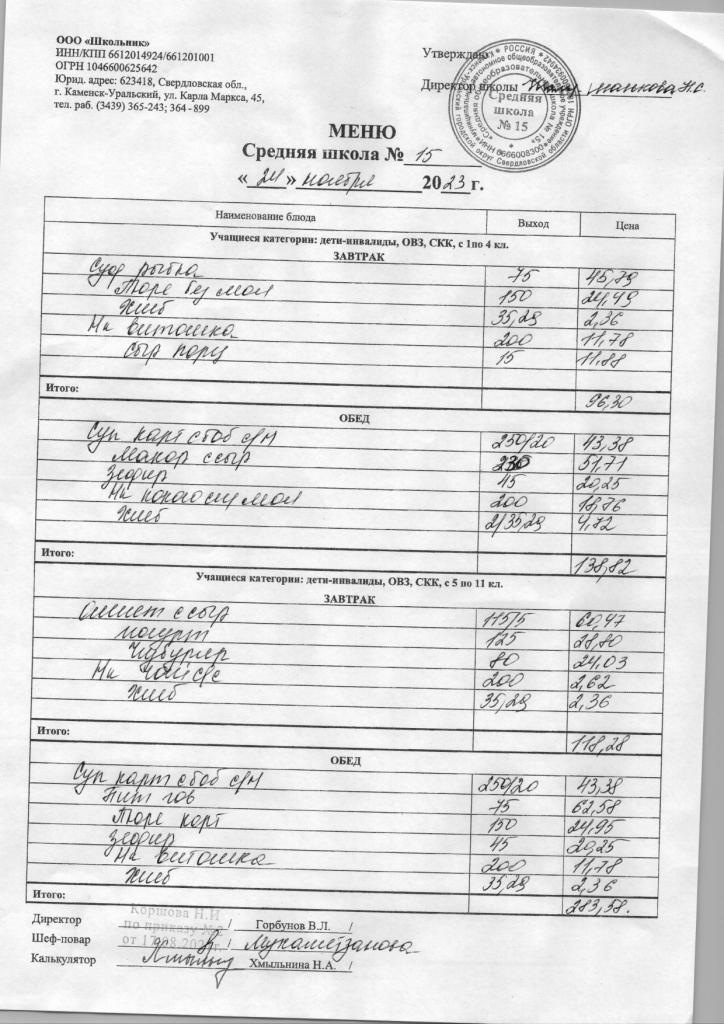 ООО «Школьник»
ИНН/КПП 6612014924/661201001
ОГРН 1046600625642
Юрид. адрес: 623418, Свердловская обл.,
г. Каменск-Уральский, ул. Карла Маркса, 45,
тел. раб. (3439) 365-243; 364 - 899
Утверждаю
Директор школы
Средняя
школа
№ 15
МЕНЮ
Средняя школа № 15
« 24 » ноября 2023 г.
Наименование блюда Выход Цена
Учащиеся категории: дети-инвалиды, ОВЗ, СКК, с 1по 4 кл.
ЗАВТРАК
Суф рыбка 75 45,79
Пюре без мол 150 24,49
Хлеб 35,29 2,36
На витошка 200 11,78
Сыр порц 15 11,88
Итого: 96,30
ОБЕД
Суп карт с боб с/м 250/20 43,38
Макар с сыр 51,71
Зефир 45 20,25
На какао с мол 200 18,76
Хлеб 2/35,29 4,72
Итого: 138,82
Учащиеся категории: дети-инвалиды, ОВЗ, СКК, с 5 по 11 кл.
ЗАВТРАК
Омлет с сыр 115/5 60,47
Йогурт 125 28,80
Чизбургер 80 24,03
На чай с/с 200 2,62
Хлеб 35,29 2,36
Итого: 118,28
ОБЕД
Суп карт с боб с/м 250/20 43,38
Бит гов 75 62,58
Пюре карт 150 24,95
Зефир 45 20,25
На витошка 200 11,78
Хлеб 35,29 2,36
Итого: 283,58.
Коршова Н.И
по приказу №
Директор / Горбунов В.Л. /
Шеф-повар /
Калькулятор Хмыльнина Н.А. /